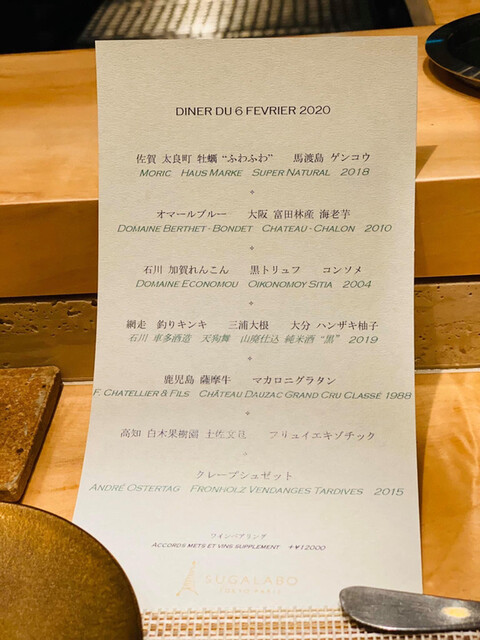 DINER DU 6 FEVRIER 2020
佐賀 太良町 牡蠣 “ふわふわ” 馬渡島 ゲンコウ
MORIC HAUS MARKE SUPER NATURAL 2018
オマールブルー 大阪 富田林産 海老芋
DOMAINE BERTHET - BONDET CHATEAU - CHALON 2010
石川 加賀れんこん 黒トリュフ コンソメ
DOMAINE ECONOMOU OIKONOMOY SITIA 2004
網走 釣りキンキ 三浦大根 大分 ハンザキ柚子
石川 車多酒造 天狗舞 山廃仕込 純米酒 “黒” 2019
鹿児島 薩摩牛 マカロニグラタン
F. CHATELLIER & FILS CHÂTEAU DAUZAC GRAND CRU CLASSÉ 1988
高知 白木果樹園 土佐文旦 フリュイエキゾチック
クレープシュゼット
ANDRÉ OSTERTAG FRONHOLZ VENDANGES TARDIVES 2015
ワインペアリング
ACCORDS METS ET VINS SUPPLEMENT +¥12000
SUGALABO
TOKYO PARIS